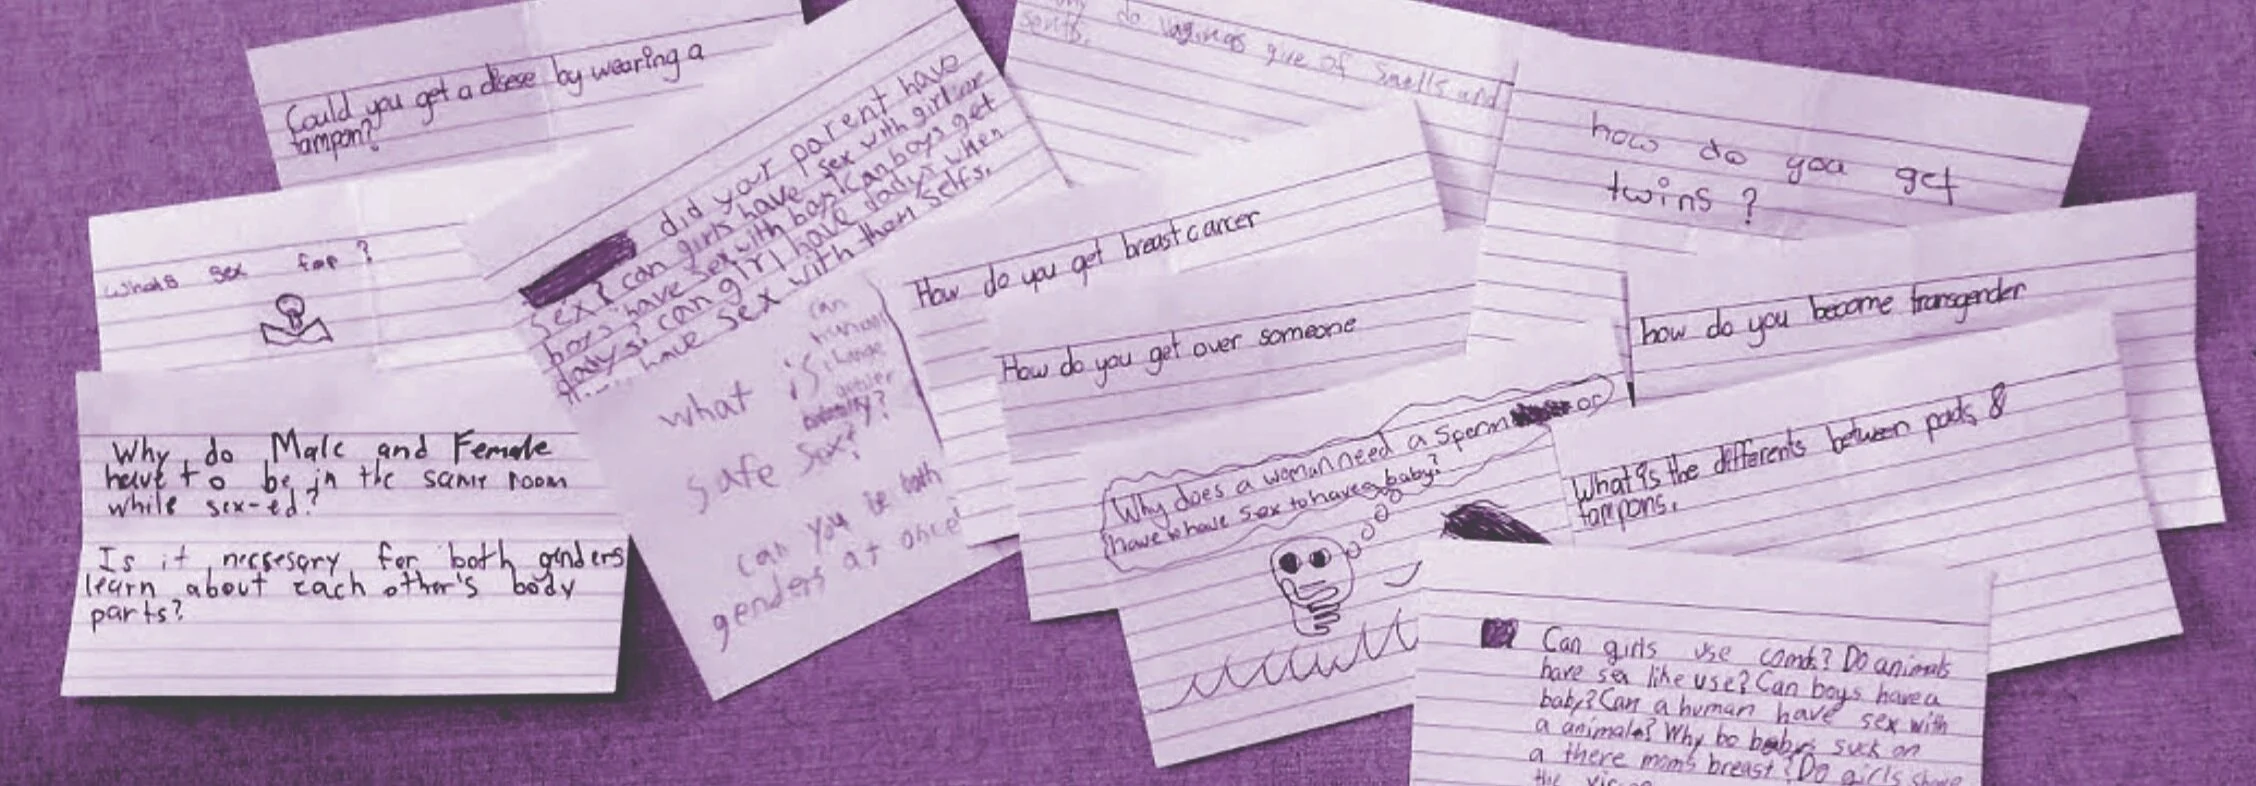 Could you get a diesese by wearing a
tampon?
did your parent have
sex? can girls have sex with girl or
boys have sex with boys? Can boys get
when
have sex with them selfs.
do vaginas give of smells and
how do you get
twins?
Whats sex for?
How do you get breast cancer
How do you get over someone
how do you become transgender
Why do Male and Female
have to be in the same room
while sex-ed?
Is it necsesary for both genders
learn about each other's body
parts?
can
humans
change
gender
what is
safe sex?
can you be both
genders at once?
Why does a woman need a sperm or
have to have sex to have a baby?
What is the differents between pads &
tampons.
Can girls use? Do animals
have sex like use? Can boys have a
baby? Can a human have sex with
a animals? Why do babys suck on
a there moms breast? Do girls
the